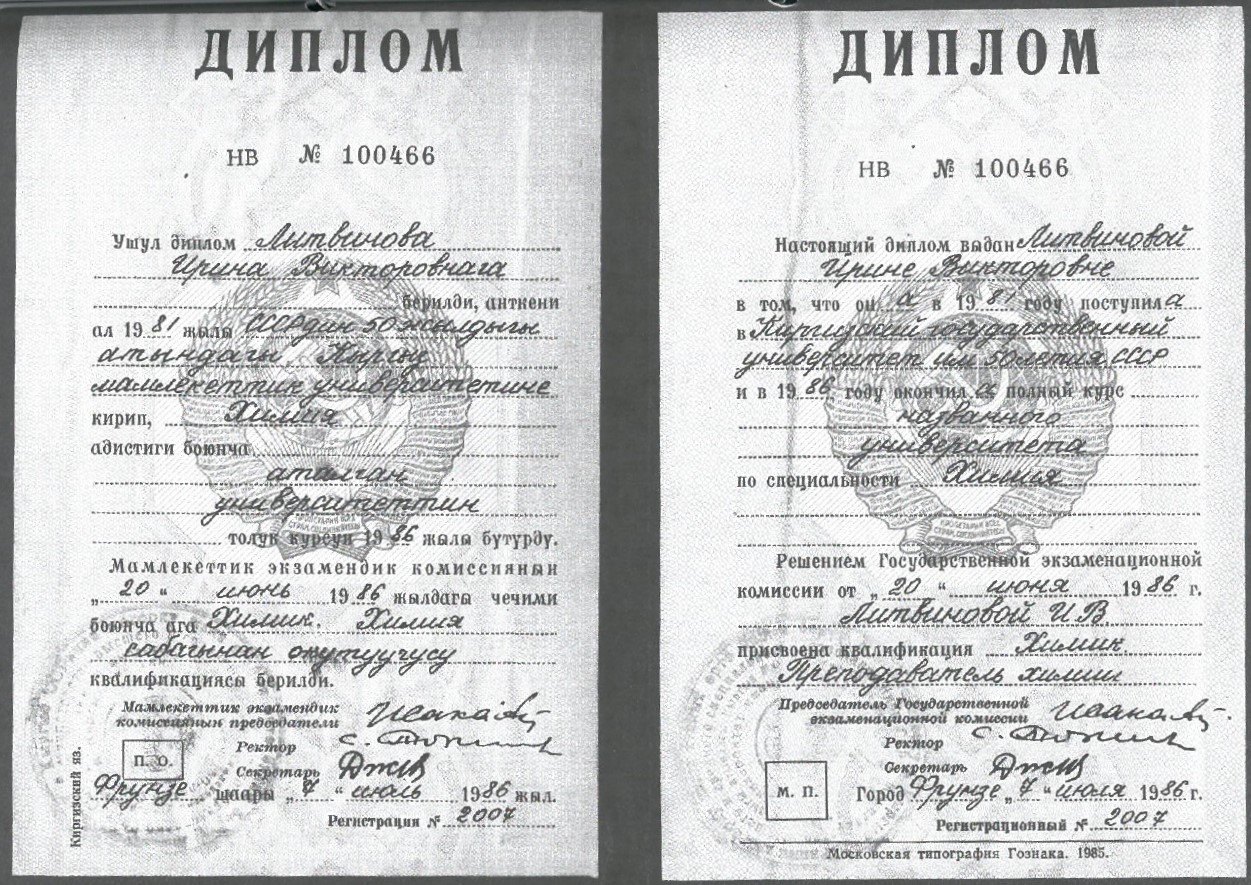 ДИПЛОМ
НВ № 100466
Ушул диплом Литвинова
Ирина Викторовнага
берилди, анткени
ал 1981 жылы СССРдин 50 жылдыгы
атындагы Кыргыз
мамлекеттик университетине
кирип, Химия
адистиги боюнча
аталган
университеттин
толук курсун 1986 жылы бутурду.
Мамлекеттик экзамендик комиссиянын
„20“ июнь 1986 жылдагы чечими
боюнча ага Химик. Химия
сабагынан окутуучусу
квалификациясы берилди.
Мамлекеттик экзамендик
комиссиянын председатели
Ректор
Секретарь
П. О.
Фрунзе шаары „7“ июль 1986 жыл.
Регистрация № 2007
Киргизский яз.
ДИПЛОМ
НВ № 100466
Настоящий диплом выдан Литвиновой
Ирине Викторовне
в том, что он а в 1981 году поступил а
в Киргизский государственный
университет им 50летия СССР
и в 1986 году окончил а полный курс
названного
университета
по специальности Химия
ПРОЛЕТАРИИ ВСЕХ
СТРАН, СОЕДИНЯЙТЕСЬ
Решением Государственной экзаменационной
комиссии от „20“ июня 1986 г.
Литвиновой И В.
присвоена квалификация Химик.
Преподаватель химии
Председатель Государственной
экзаменационной комиссии
Ректор
Секретарь
М. П.
Город Фрунзе „7“ июля 1986 г.
Регистрационный № 2007
Московская типография Гознака. 1985.